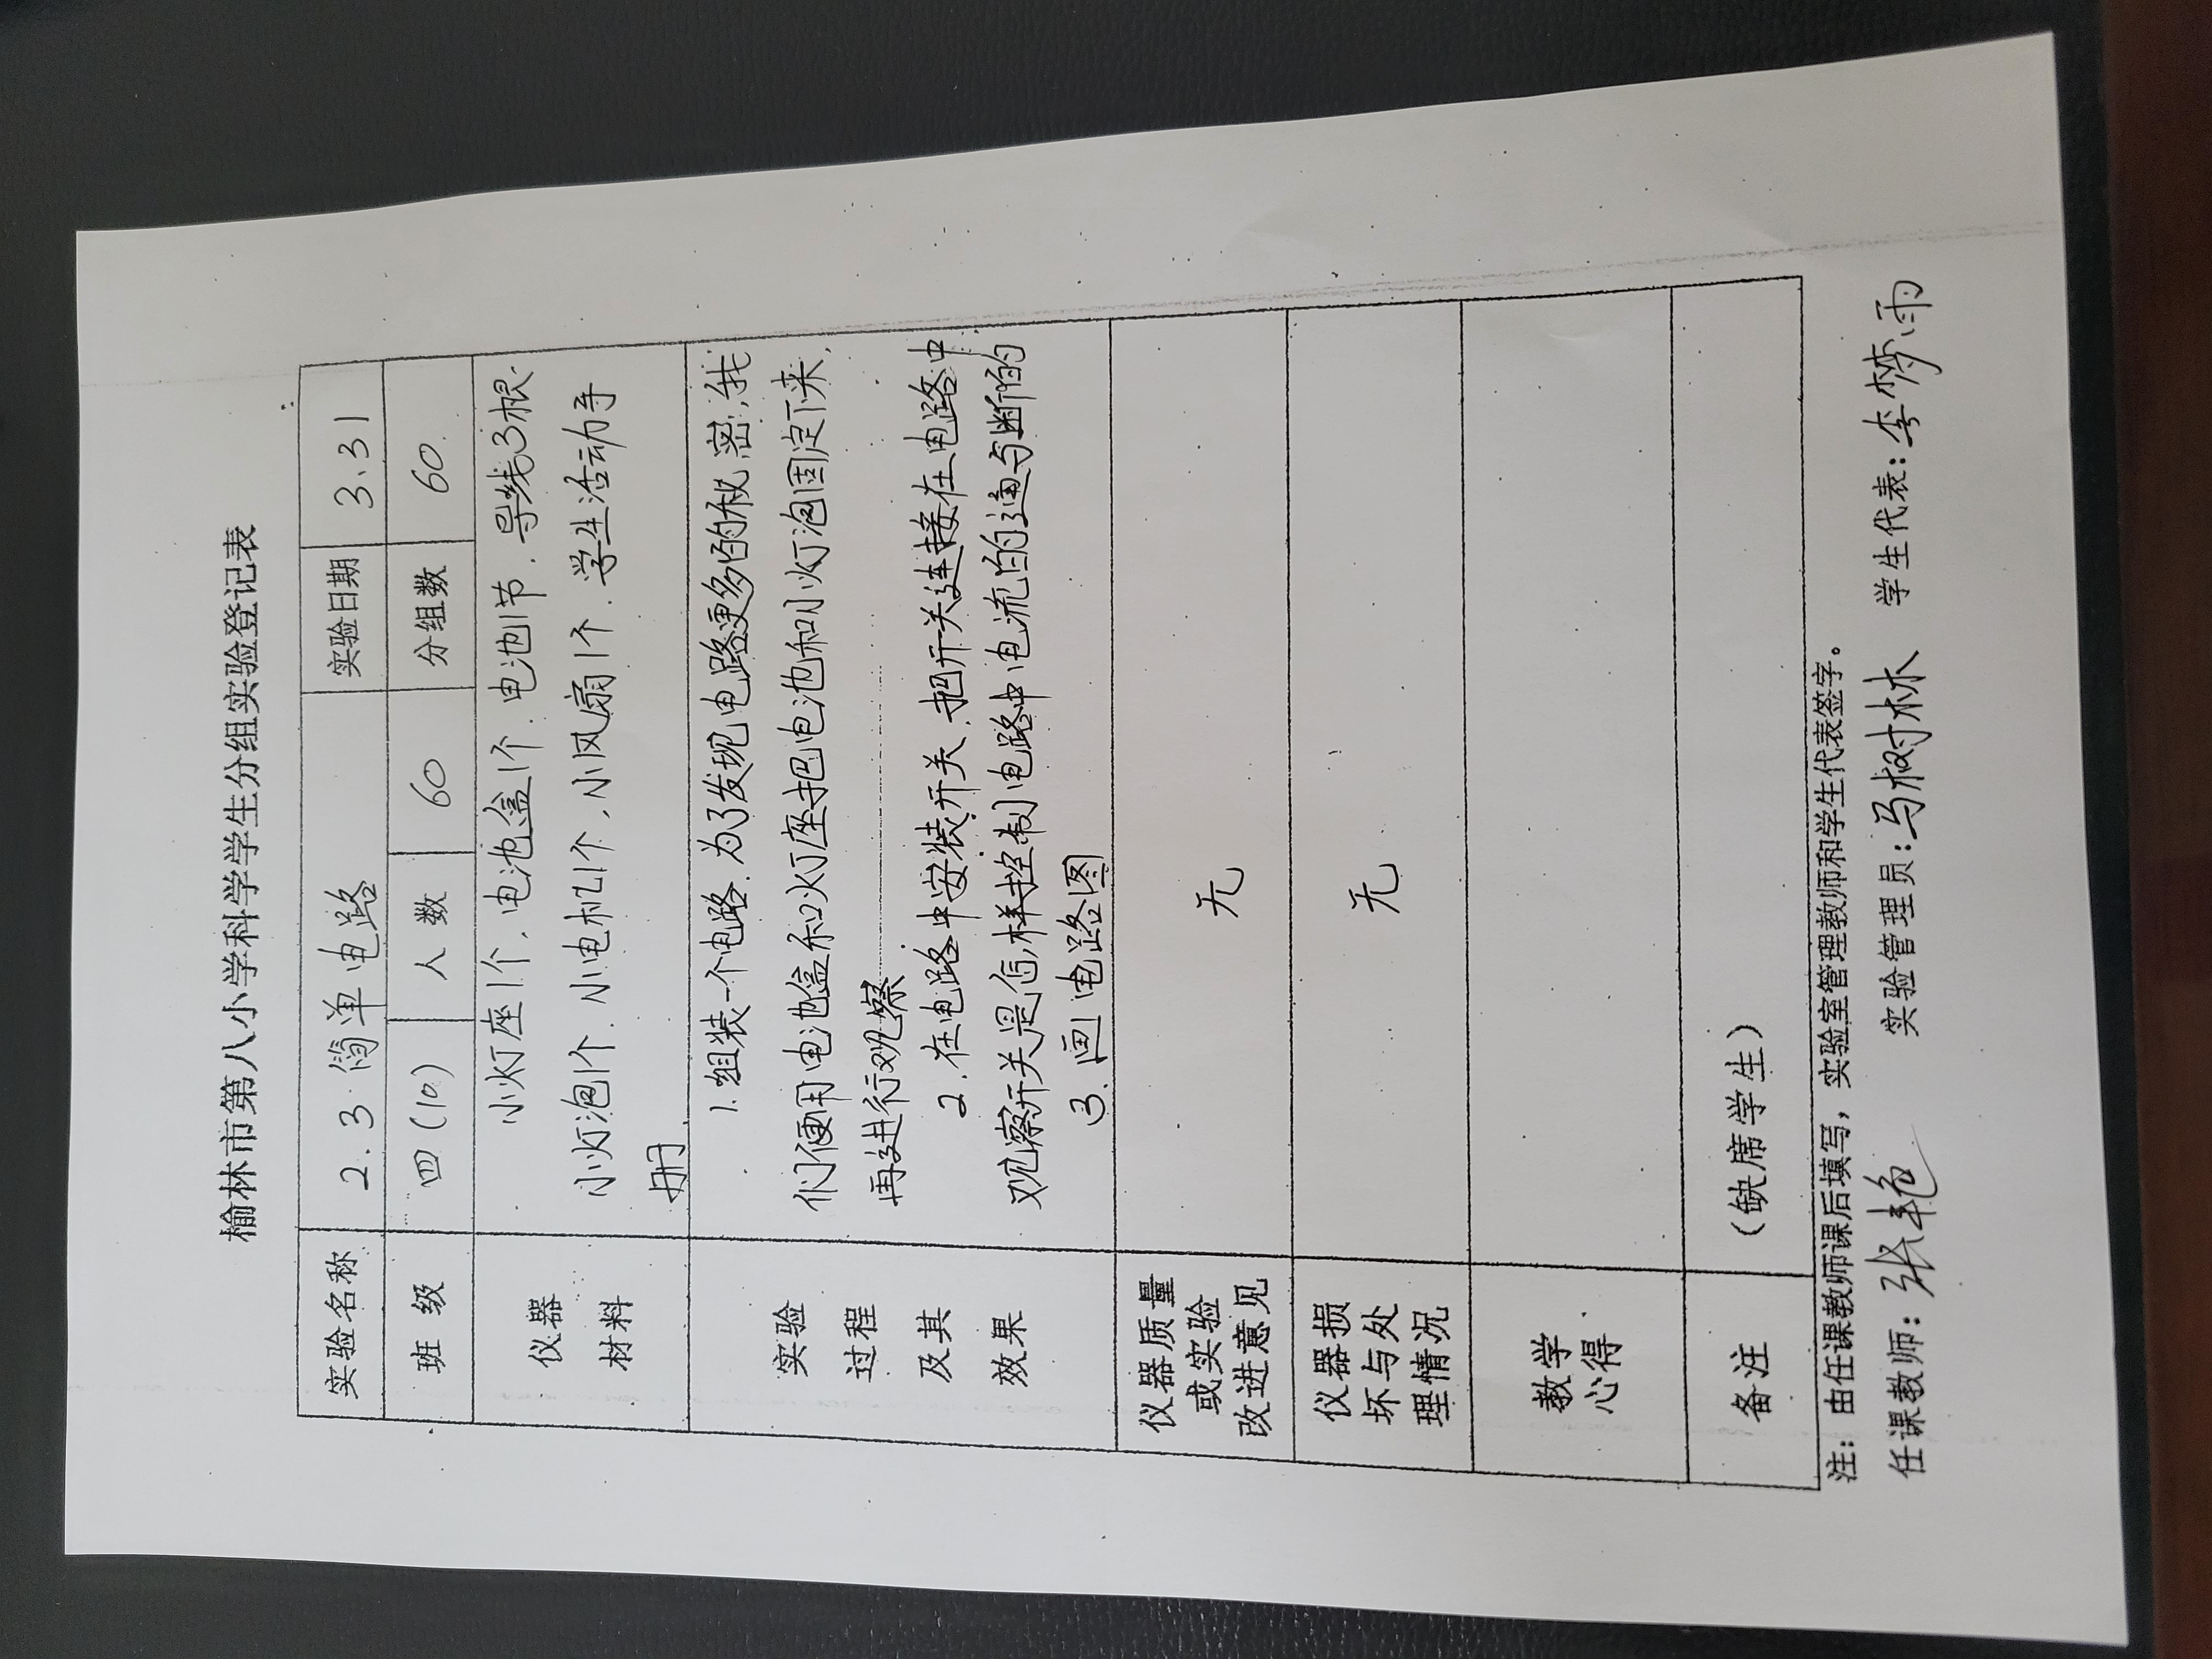 榆林市第八小学科学学生分组实验登记表
实验名称 2.3 简单电路 实验日期 3、31
班 级 四(10) 人 数 60 分组数 60
仪器
材料
小灯座1个,电池盒1个.电池1节.导线3根.
小灯泡1个.小电机1个,小风扇1个.学生活动手
册
实验
过程
及其
效果
1.组装一个电路.为了发现电路更多的秘密,我
们便用电池盒和灯座把电池和小灯泡固定下来,
再进行观察
2.在电路中安装开关.把开关连接在电路中
观察开关是怎样控制电路中电流的通与断的
3.画电路图
仪器质量
或实验
改进意见
无
仪器损
坏与处
理情况
无
教学
心得
备注 (缺席学生)
注:由任课教师课后填写,实验室管理教师和学生代表签字。
任课教师:张艳 实验管理员:马树林 学生代表:李梦雨